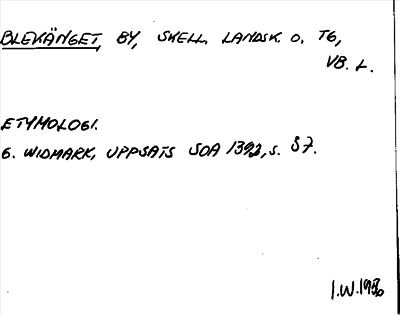 BLEKÄNGET, BY, SKELL. LANDSK. O. TG,
VB. L.
ETYMOLOGI.
G. WIDMARK, UPPSATS SOA 1392, S. 87.
I.W.1980